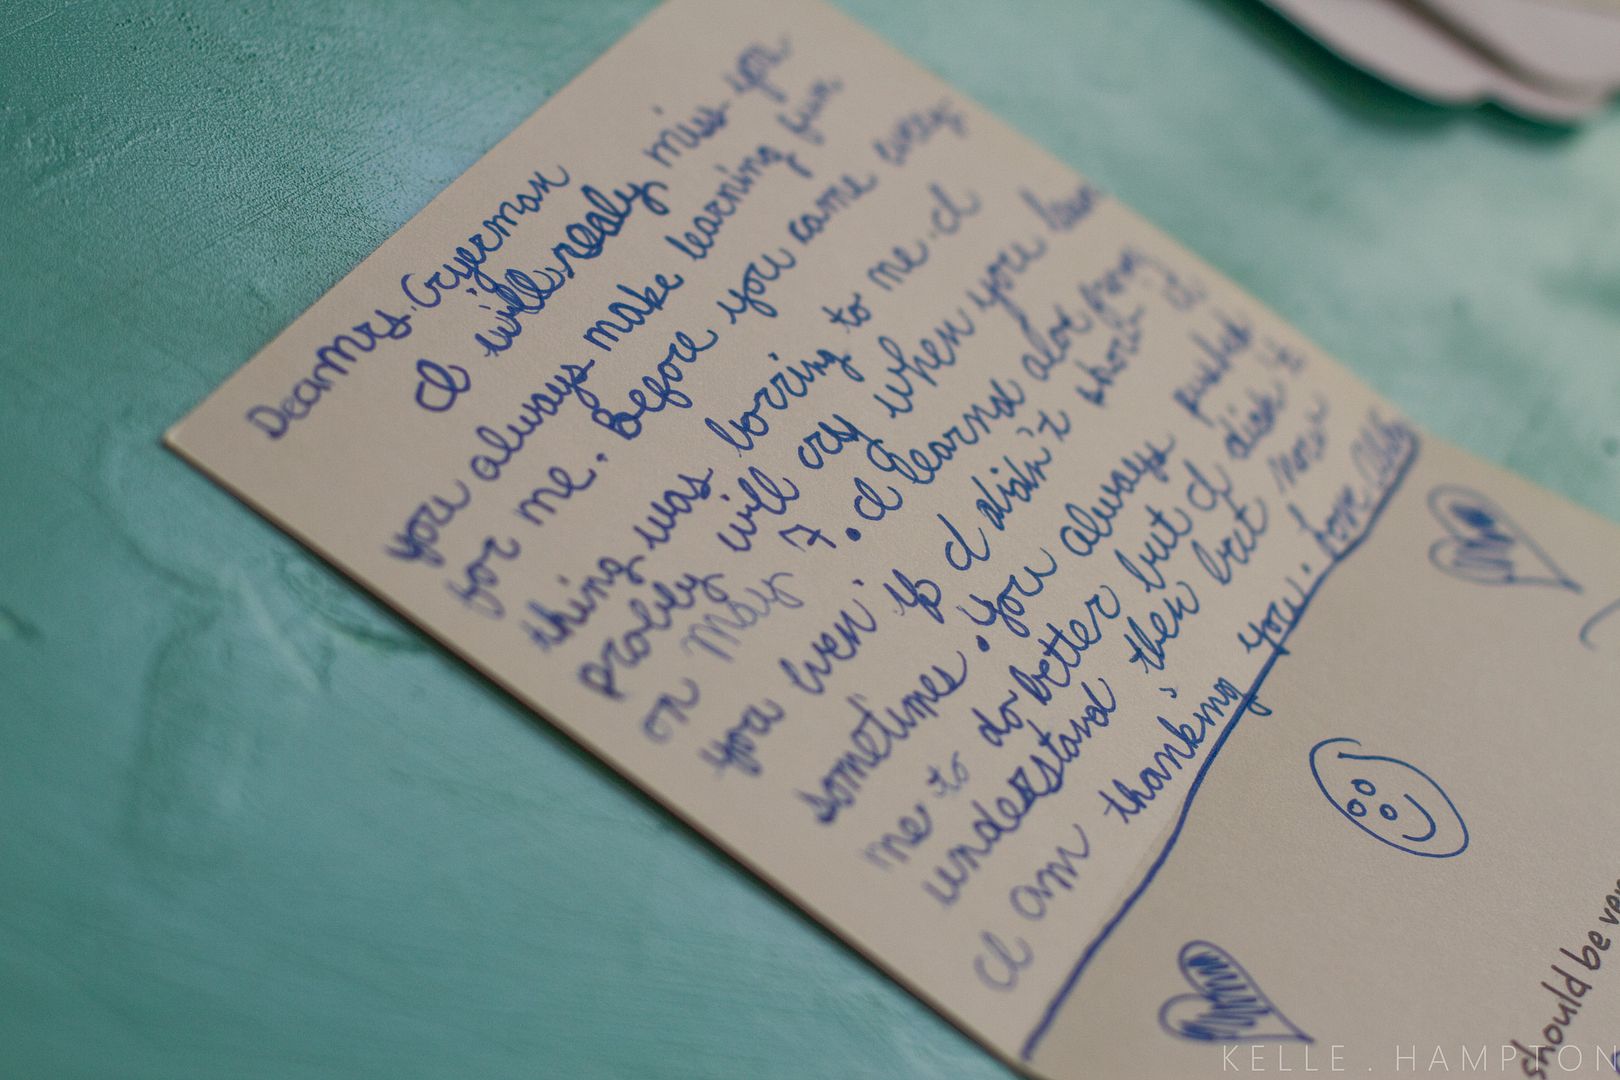 Dear Mrs. Gryerman
I will really miss you
you always make learning fun
for me. Before you came every
thing was borring to me. I
probly will cry when you leav
on May 7. I learnd alot from
you even if I didn't show it
sometimes. You always pushed
me to do better but I didn't
understand then but now
I am thanking you. Love
should be
KELLE . HAMPTON